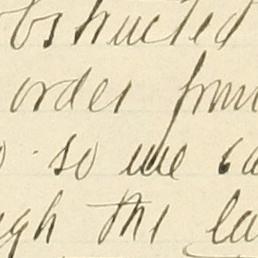 obstructed
order from
so we ca
ugh the la